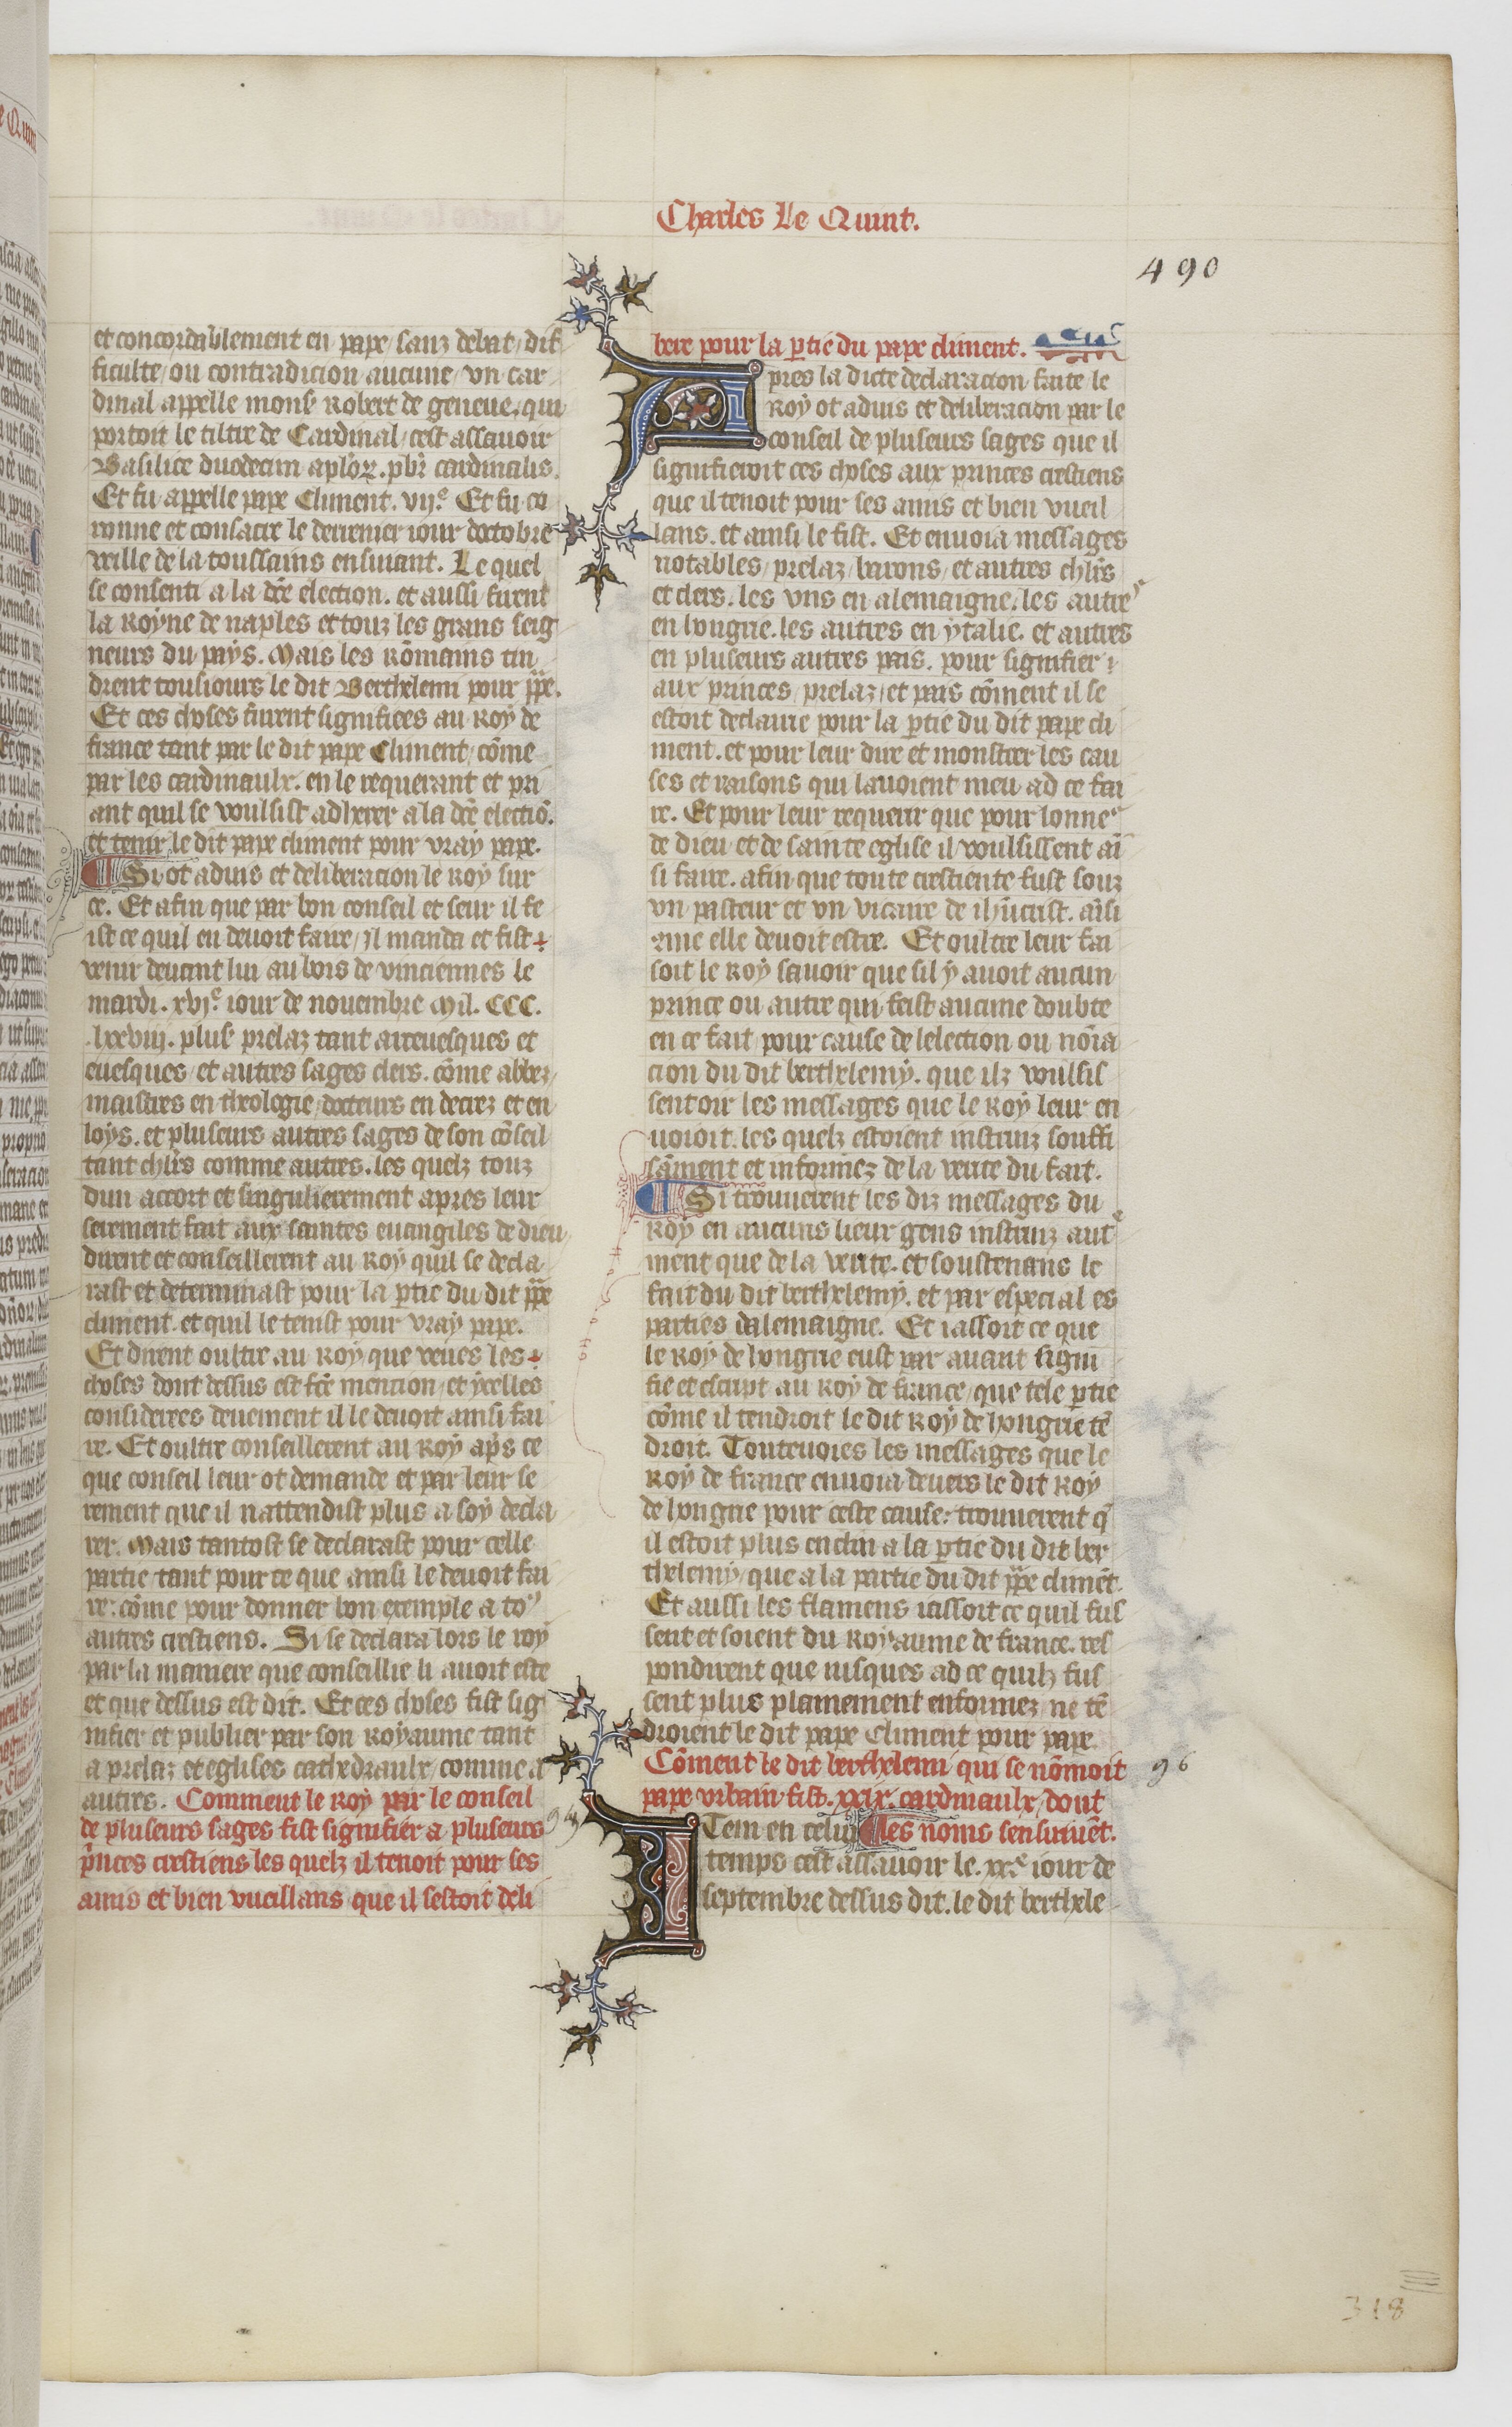 Charles Le Quint.
490
et concordablement en pape sanz debat, dif
ficulte, ou contradicion aucune, vn car
dinal appelle mons̄ Robert de geneue, qui
portoit le tiltre de Cardinal, cest assauoir
Basilice duodecim apl̄oꝝ. pb̄r cardinalis.
Et fu appelle pape Climent. vij.e Et fu co
ronne et consacre le derrenier iour doctobre
veille de la toussains ensuiuant. Le quel
se consenti a la dc̄e election. et aussi furent
la Royne de naples et touz les grans seig
neurs du pays. Mais les Rōmains tin
drent tousiours le dit Berthelemi pour pp̄e.
Et ces choses furent signifiees au Roy de
france tant par le dit pape Climent, cōme
par les cardinaulx. en le requerant et pri
ant quil se voulsist adherer a la dc̄e electiō.
et tenir le dit pape climent pour vray pape.
Si ot aduis et deliberacion le Roy sur
ce. Et afin que par bon conseil et seur il fe
ist ce quil en deuoit faire, Il manda et fist
venir deuant lui au bois de vinciennes le
mardi. xvj.e iour de nouembre Mil. CCC.
.lxxviij. plus̄ prelaz tant arceuesques et
euesques, et autres sages clers. cōme abbez,
maistres en theologie, docteurs en decrez et en
loys. et pluseurs autres sages de son cōseil
tant chl̄rs comme autres. les quelz touz
dun accort et singulierement apres leur
serement fait aux saintes euangiles de dieu
dirent et conseillerent au Roy quil se decla
rast et determinast pour la ꝑtie du dit pp̄e
climent. et quil le tenist pour vray pape.
Et dirent oultre au Roy que veues les
choses dont dessus est fc̄e mencion, et ycelles
considerees deuement il le deuoit ainsi fai
re. Et oultre conseillerent au Roy ap̄s ce
que conseil leur ot demande et par leur se
rement que il nattendist plus a soy decla
rer. Mais tantost se declarast pour celle
partie, tant pour ce que ainsi le deuoit fai
re: cōme pour donner bon exemple a toꝰ
autres crestiens. Si se declara lors le roy
par la maniere que conseillie li auoit este
et que dessus est dit. Et ces choses fist sig
nifier et publier par son Royaume tant
a prelaz et eglises cathedraulx, comme a
autres. Comment le Roy par le conseil
de pluseurs sages fist signifier a pluseurs
p̄nces crestiens les quelz il tenoit pour ses
amis et bien vueillans que il sestoit deli
bere pour la ꝑtie du pape climent.
Apres la dicte declaracion faite le
Roy ot aduis et deliberacion par le
conseil de pluseurs sages que il
signifieroit ces choses aux princes crestiens
que il tenoit pour ses amis et bien vueil
lans. et ainsi le fist. Et enuoia messages
notables, prelaz, barons, et autres chl̄rs
et clers. les vns en alemaigne. les autreˢ
en hongrie. les autres en ytalie. et autres
en pluseurs autres pais. pour signifier
aux princes, prelaz, et pais cōment il se
estoit declairie pour la ꝑtie du dit pape cli
ment. et pour leur dire et monstrer les cau
ses et raisons qui lauoient meu ad ce fai
re. Et pour leur requerir que pour lonneᵉ
de dieu et de sainte eglise il voulsissent aī
si faire. afin que toute crestiente fust souz
vn pasteur et vn vicaire de ih̄ucrist. aīsi
cme elle deuoit estre. Et oultre leur fai
soit le Roy sauoir que sil y auoit aucun
prince ou autre qui feist aucune doubte
en ce fait, pour cause de lelection ou nōīa
cion du dit berthelemy. que ilz voulsis
sent oir les messages que le Roy leur en
uoioit. les quelz estoient instruiz souffi
sāment et informez de la verite du fait.
Si trouuerent les diz messages du
Roy en aucuns lieux gens instruiz autᵉ
ment que de la verite. et soustenans le
fait du dit berthelemy. et par especial es
parties dalemaigne. Et iassoit ce que
le Roy de hongrie eust par auant signi
fie et escript au Roy de france, que tele ꝑtie
cōme il tendroit le dit Roy de hongrie tē
droit. Touteuoies les messages que le
Roy de france enuoia deuers le dit Roy
de hongrie pour ceste cause: trouuerent q̄
il estoit plus enclin a la ꝑtie du dit ber
thelemy, que a la partie du dit pp̄e climēt.
Et aussi les flamens iassoit ce quil fus
sent et soient du Royaume de france. res
pondirent que iusques ad ce quilz fus
sent plus plainement enformez, ne tē
droient le dit pape Climent pour pape.
Cōment le dit berthelemi qui se nōmoit
96
pape vrbain fist. xxix. cardinaulx, dont
les noms sensuiuēt.
Item en celui
temps cest assauoir le. xxe iour de
septembre dessus dit. le dit berthele
318